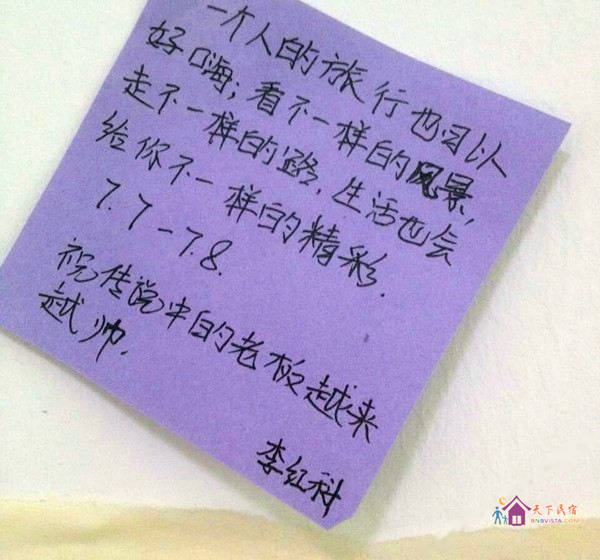 一个人的旅行也可以
好嗨；看不一样的风景，
走不一样的路，生活也会
给你不一样的精彩.
7.7-7.8.
祝传说中的老板越来
越帅.
李红科
天下民宿
BNBVISTA.COM